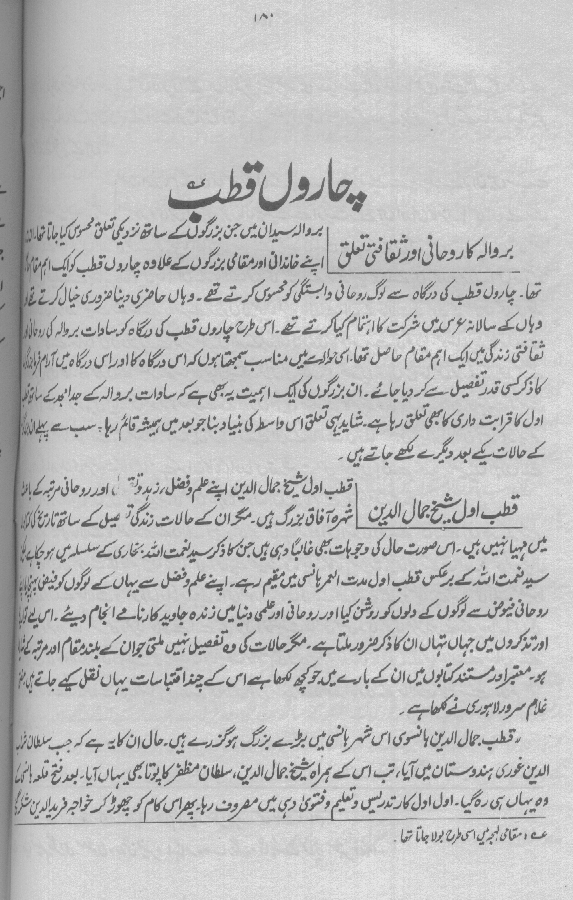 ۱۸۰
چاروں قطب
بروالہ کا روحانی اور ثقافتی تعلق
بروالہ سیدان میں جن بزرگوں کے ساتھ نزدیکی تعلق محسوس کیا جاتا تھا۔
اپنے خاندانی اور مقامی بزرگوں کے علاوہ چاروں قطب کو ایک اہم مقام
تھا۔ چاروں قطب کی درگاہ سے لوگ روحانی وابستگی کو محسوس کرتے تھے۔ وہاں حاضری دینا ضروری خیال کرتے تھے
وہاں کے سالانہ عرس میں شرکت کا اہتمام کیا کرتے تھے۔ اس طرح چاروں قطب کی درگاہ کو سادات بروالہ کی روحانی
ثقافتی زندگی میں ایک اہم مقام حاصل تھا۔ اسی حوالے میں مناسب سمجھتا ہوں کہ اس درگاہ کا اور اس درگاہ میں آرام
کا ذکر کسی قدر تفصیل سے کر دیا جائے۔ ان بزرگوں کی ایک اہمیت یہ بھی ہے کہ سادات بروالہ کے جد امجد کے ساتھ
اول کا قرابت داری کا بھی تعلق رہا ہے۔ شاید یہی تعلق اس واسطہ کی بنیاد بنا جو بعد میں ہمیشہ قائم رہا۔ سب سے پہلے ان
کے حالات یکے بعد دیگرے لکھے جاتے ہیں۔
قطب اول شیخ جمال الدین
قطب اول شیخ جمال الدین اپنے علم و فضل، زہد و اور روحانی مرتبہ کے
شہرہ آفاق بزرگ ہیں۔ مگر ان کے حالات زندگی تفصیل کے ساتھ تاریخ کی
میں مہیا نہیں ہیں۔ اس صورت حال کی وجوہات بھی غالباً وہی ہیں جن کا ذکر سید نعمت اللہ بخاری کے سلسلہ میں ہو چکا ہے
سید نعمت اللہ کے برعکس قطب اول مدت العمر ہانسی میں مقیم رہے۔ اپنے علم و فضل سے یہاں کے لوگوں کو فیض پہنچایا
روحانی فیوض سے لوگوں کے دلوں کو روشن کیا اور روحانی اور علمی دنیا میں زندہ جاوید کارنامے انجام دیئے۔ اس لیے
اور تذکروں میں جہاں تہاں ان کا ذکر ضرور ملتا ہے۔ مگر حالات کی وہ تفصیل نہیں ملتی جو ان کے بلند مقام اور مرتبہ کے
ہو۔ معتبر اور مستند کتابوں میں ان کے بارے میں جو کچھ لکھا ہے اس کے چند اقتباسات یہاں نقل کیے جاتے ہیں
غلام سرور لاہوری نے لکھا ہے۔
"قطب جمال الدین ہانسوی اس شہر ہانسی میں بڑے بزرگ ہو گزرے ہیں۔ حال ان کا یہ ہے کہ جب سلطان
الدین غوری ہندوستان میں آیا، تب اس کے ہمراہ شیخ جمال الدین، سلطان مظفر کا پوتا بھی یہاں آیا۔ بعد فتح قلعہ
وہ یہاں ہی رہ گیا۔ اول اول کار تدریس و تعلیم و فتویٰ دہی میں مصروف رہا۔ پھر اس کام کو چھوڑ کر خواجہ فرید الدین
ے: مقامی لہجہ میں اسی طرح بولا جاتا تھا۔